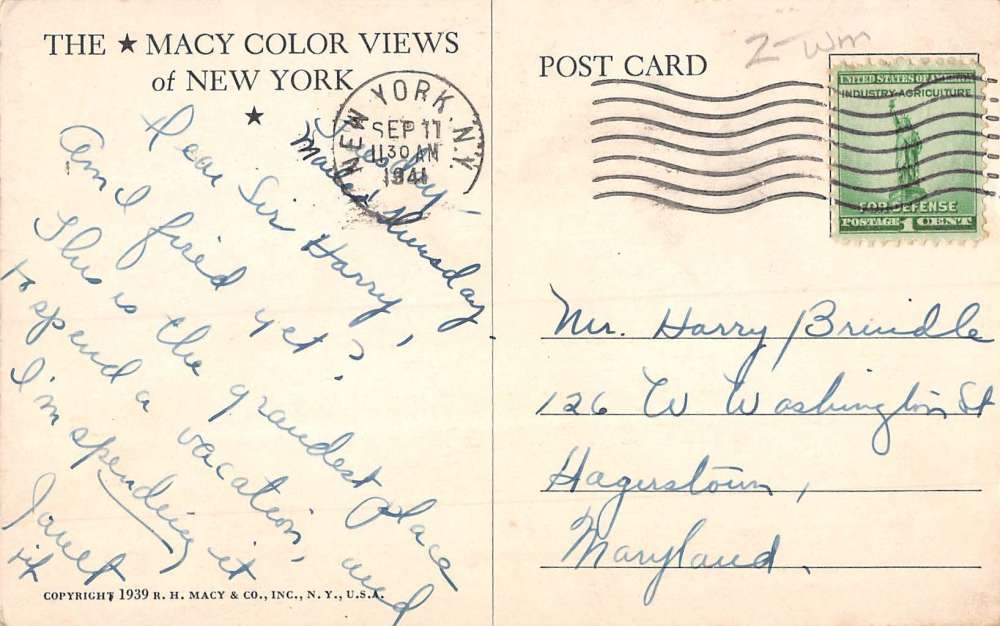 THE ★ MACY COLOR VIEWS
of NEW YORK
★
Tuesday –
Mailed Thursday
Dear Sir Harry,
Am I fired yet?
This is the grandest place
to spend a vacation, and
I'm spending it
Janet
POST CARD
NEW YORK, N.Y.
SEP 11
11 30 AM
1941
UNITED STATES OF AMERICA
INDUSTRY·AGRICULTURE
FOR DEFENSE
POSTAGE 1 CENT
Mr. Harry Brindle
126 W Washington St
Hagerstown,
Maryland.
COPYRIGHT 1939 R. H. MACY & CO., INC., N. Y., U.S.A.